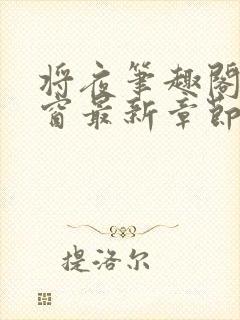 将夜笔趣阁
窗最新章节
提洛尔